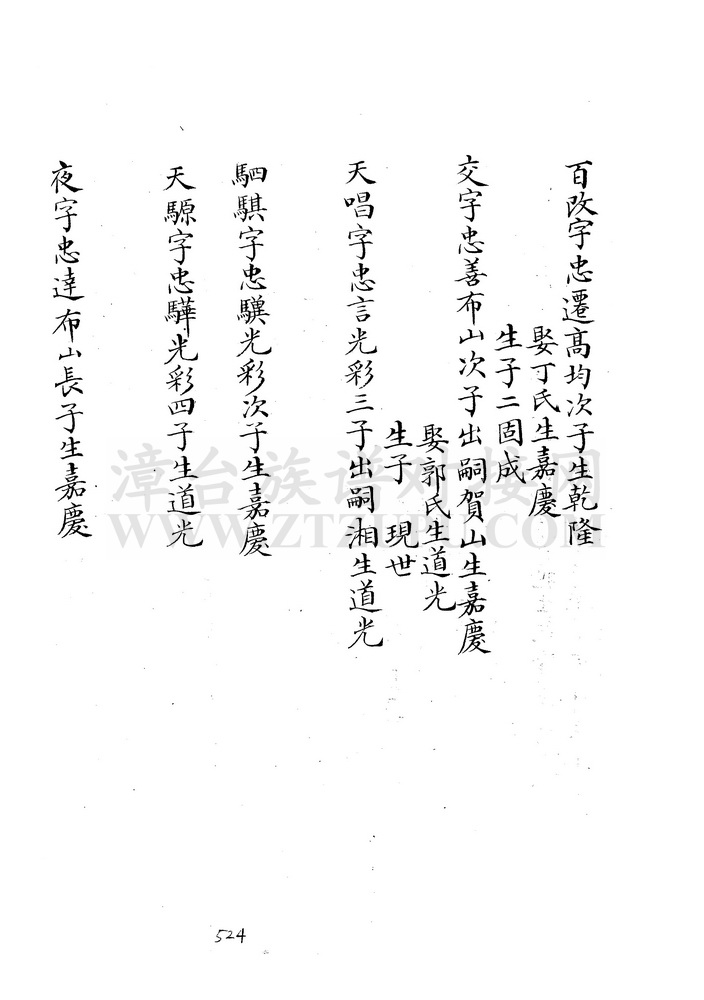 百改字忠遷高均次子生乾隆
娶丁氏生嘉慶
生子二固成
交字忠善布山次子出嗣賀山生嘉慶
娶郭氏生道光
生子 現世
天唱字忠言光彩三子出嗣湘生道光
駟騏字忠驥光彩次子生嘉慶
天騵字忠驊光彩四子生道光
夜字忠達布山長子生嘉慶
524
漳台族谱对接网
WWW.ZTZUPU.COM